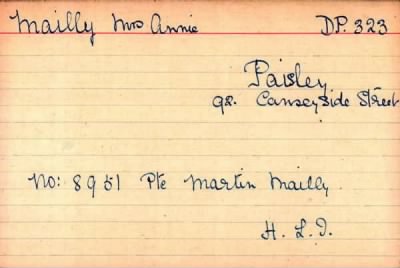 Mailly Mrs Annie DP. 323
Paisley
92. Canseyside Street
No: 8951 Pte Martin Mailly.
H. L. I.